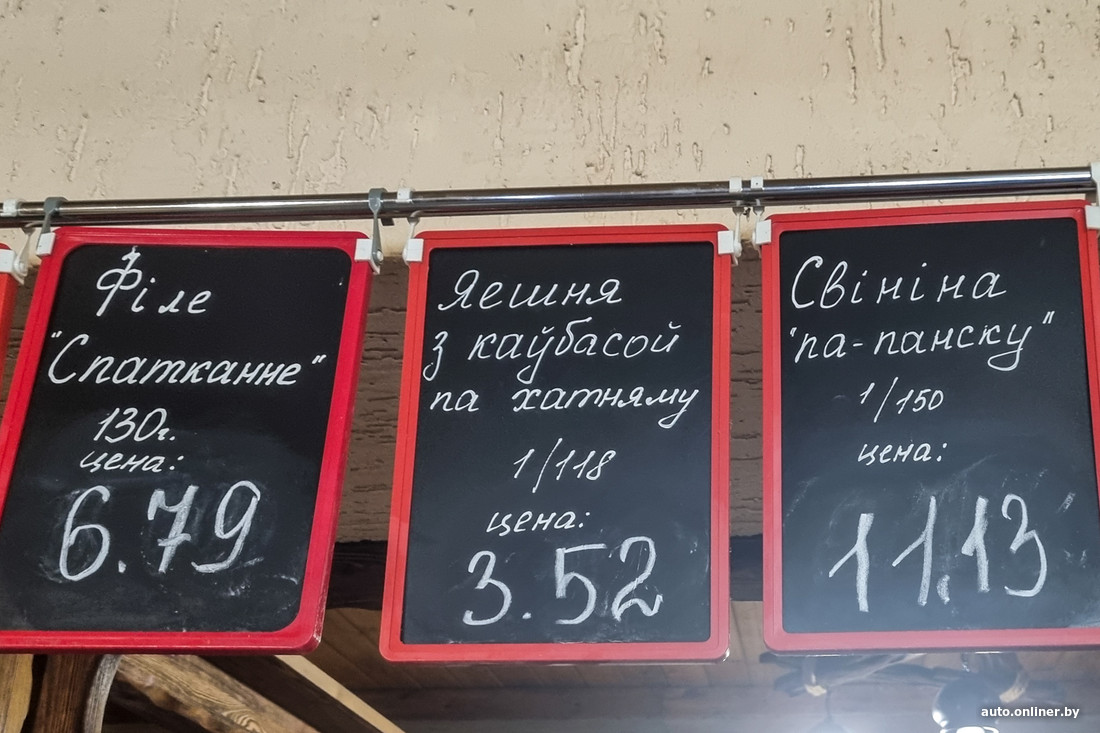 Філе
"Спатканне"
130г.
цена:
6.79
Яешня
з каўбасой
па хатняму
1/118
цена:
3.52
Свініна
"па-панску"
1/150
цена:
11.13
auto.onliner.by